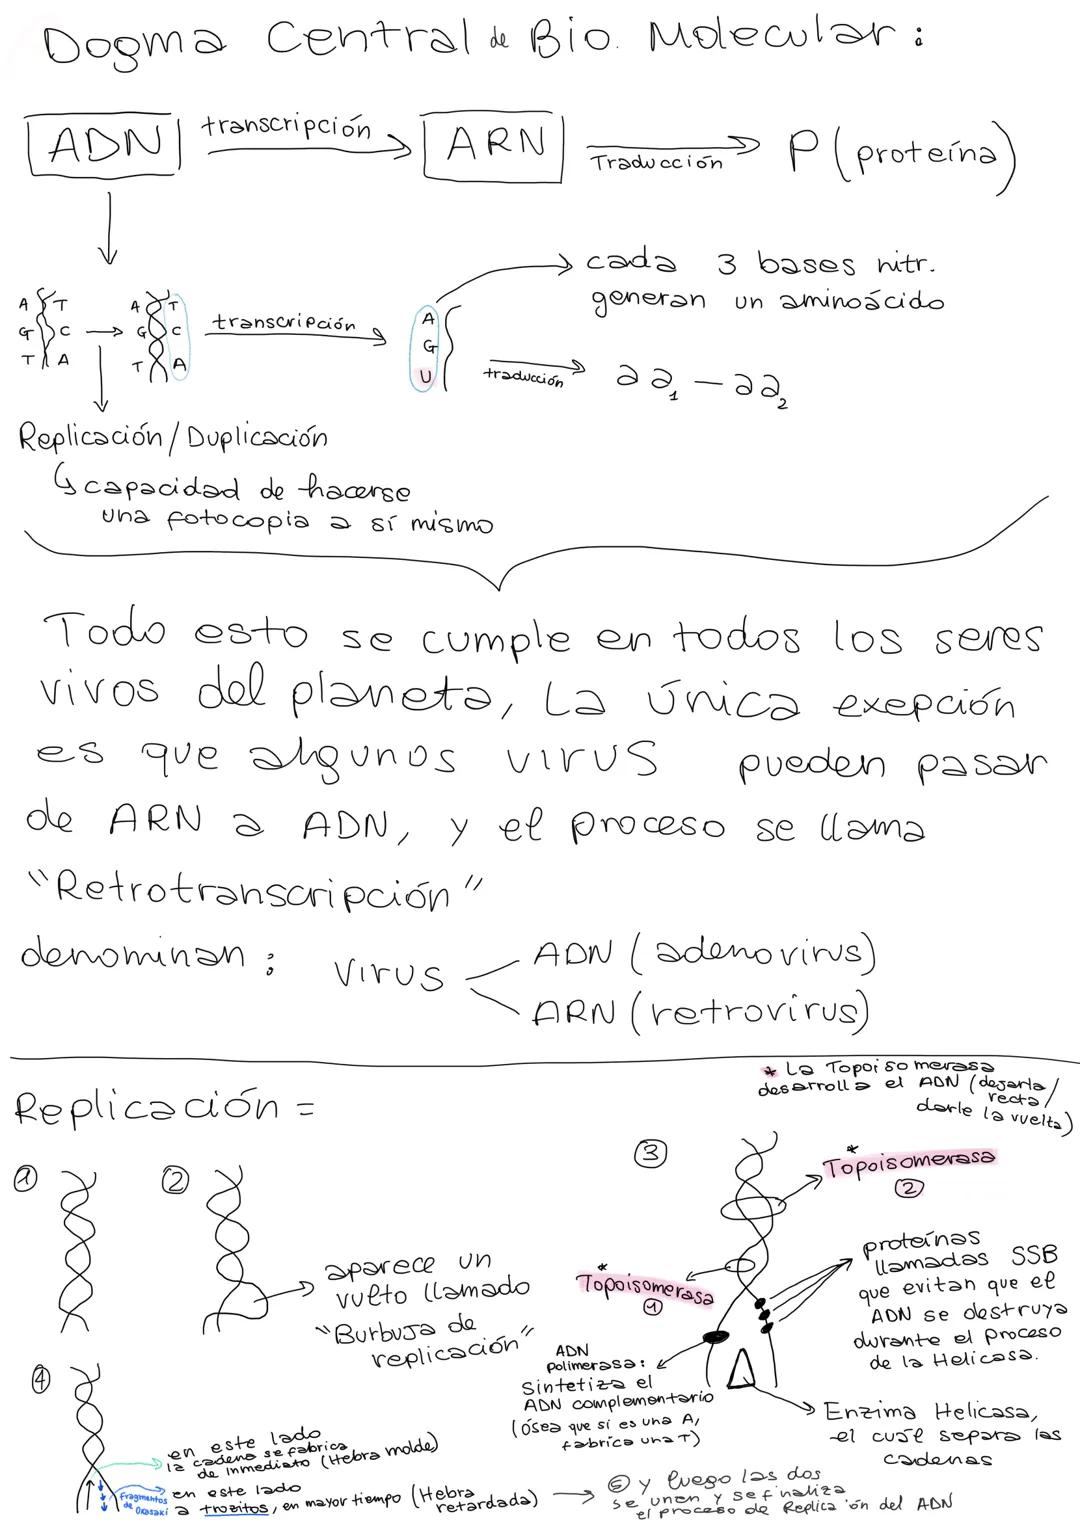 Dogma Central de Bio. Molecular:
ADN transcripción ARN Traducción P (proteína)
cada 3 bases nitr.
generan un aminoácido
A T A T transcripción A
G C G C G
T A T A U
traducción aa1 - aa2
Replicación / Duplicación
capacidad de hacerse
una fotocopia a sí mismo
Todo esto se cumple en todos los seres
vivos del planeta, La única exepción
es que algunos virus pueden pasar
de ARN a ADN, y el proceso se llama
"Retrotranscripción"
denominan: Virus ADN (adenovirus)
ARN (retrovirus)
* La Topoisomerasa
desarrolla el ADN (dejarla/
recta/
darle la vuelta)
Replicación =
1 2
aparece un
vulto llamado
"Burbuja de
replicación"
3
* Topoisomerasa
2
* Topoisomerasa
1
proteínas
llamadas SSB
que evitan que el
ADN se destruya
durante el proceso
de la Helicasa.
ADN
polimerasa:
Sintetiza el
ADN complementario
(ósea que si es una A,
fabrica una T)
Enzima Helicasa,
el cual separa las
cadenas
4
en este lado
la cadena se fabrica
de inmediato (Hebra molde)
Fragmentos
de Okasaki
en este lado
a trozitos, en mayor tiempo (Hebra
retardada)
5 y luego las dos
se unen y se finaliza
el proceso de Replica ión del ADN